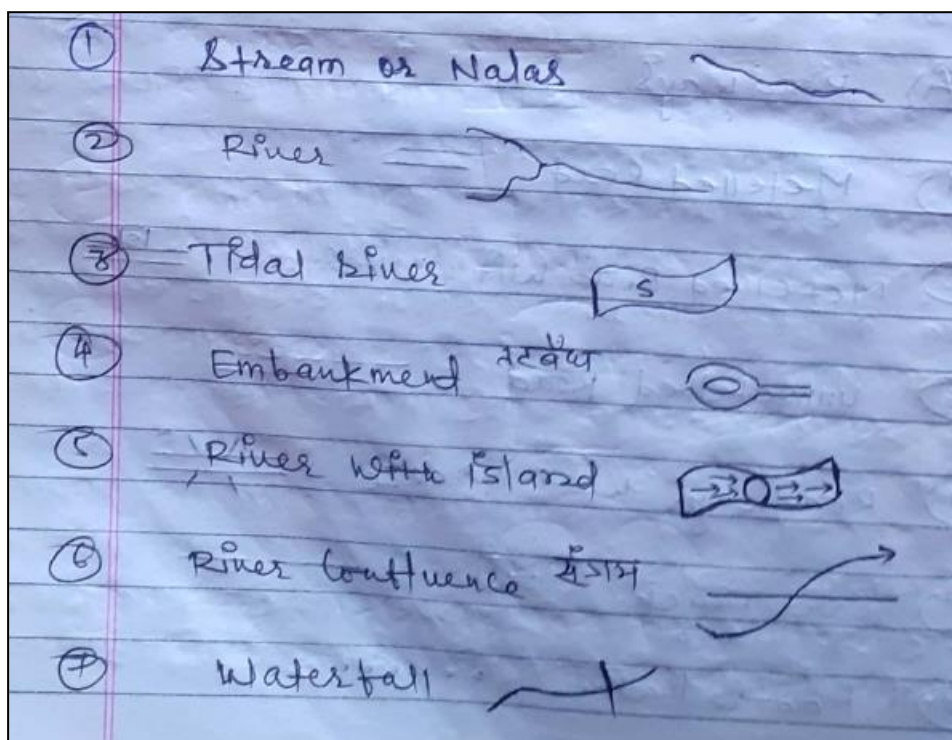 1 Stream or Nalas
2 River
3 Tidal River S
4 Embankmend तटबंध
5 River with island
6 River Confluence संगम
7 Waterfall